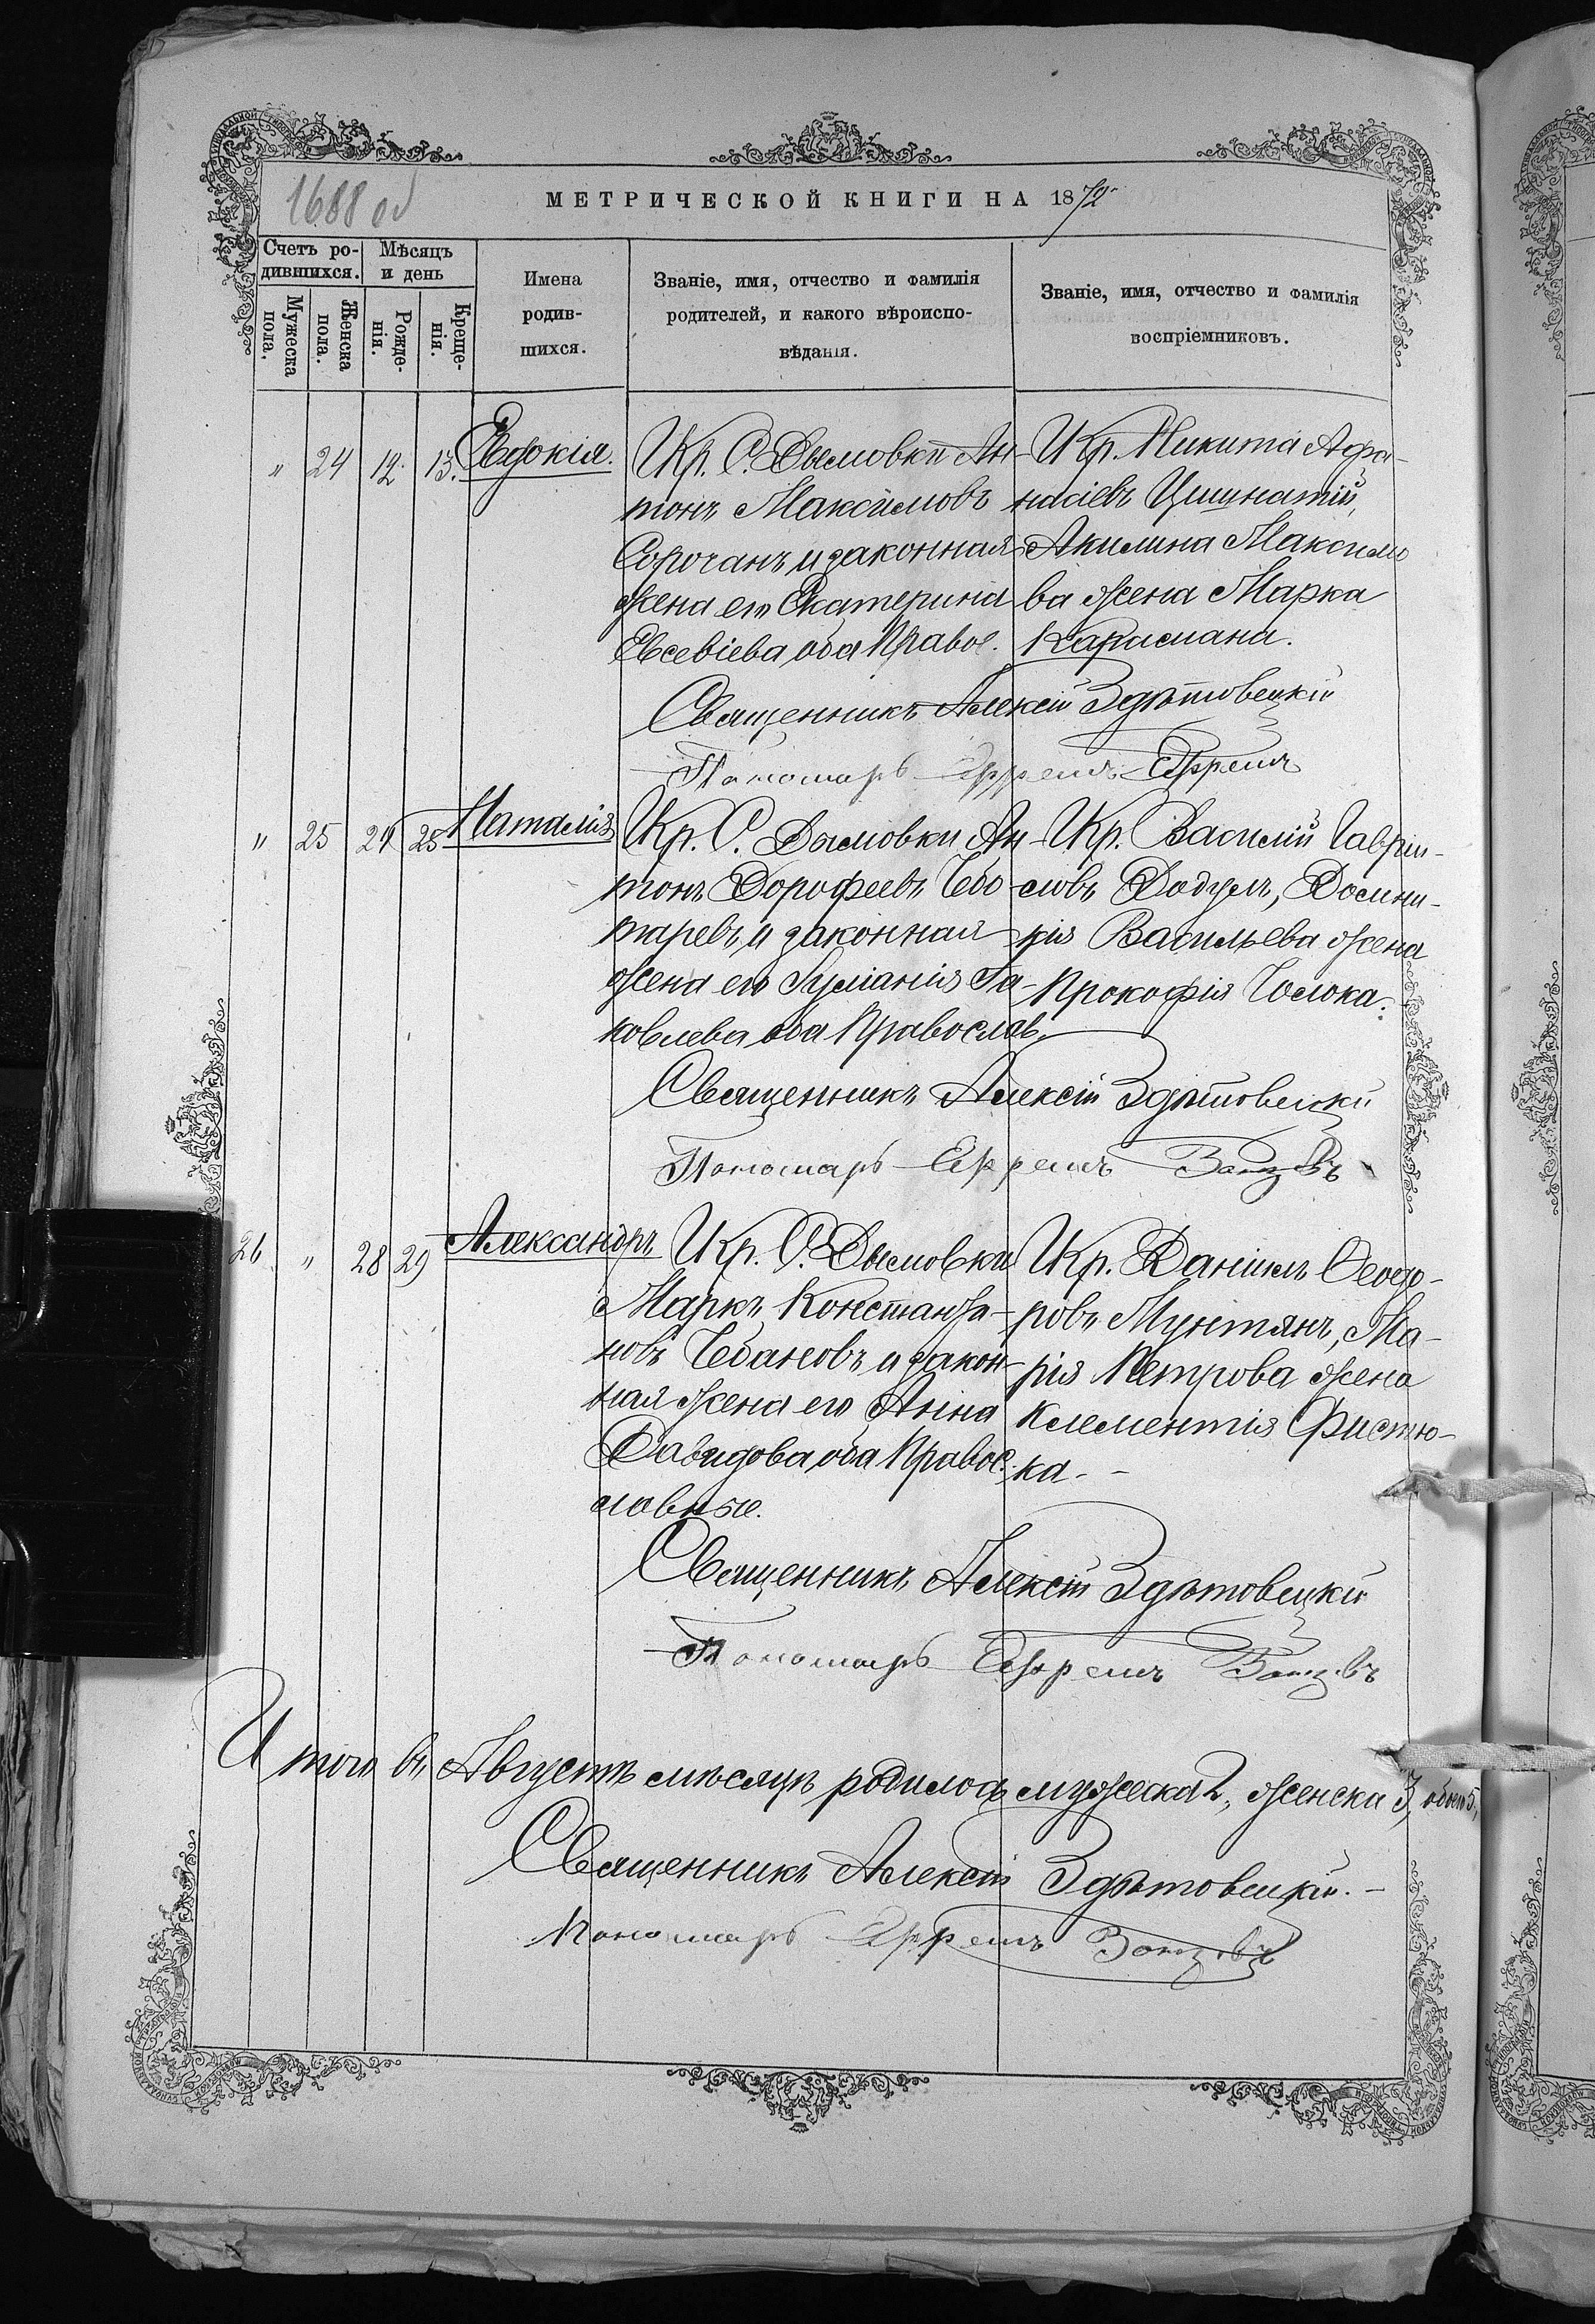 1688 об
МЕТРИЧЕСКОЙ КНИГИ НА 1872
Счетъ ро-
дившихся.
Мѣсяцъ
и день
Мужеска
пола.
Женска
пола.
Рожде-
нія.
Креще-
нія.
Имена
родив-
шихся.
Званіе, имя, отчество и фамилія
родителей, и какого вѣроиспо-
вѣданія.
Званіе, имя, отчество и фамилія
воспріемниковъ.
" 24 12. 13. Евдокія.
Кр. С. Дымовки Ан-
тонъ Максимовъ
Сорочанъ и законная
жена его Екатерина
Евсевіева, оба Правос.
Кр. Никита Афа-
насіевъ
Акилина Максимо
ва жена Марка
Караимана.
Священникъ Алексій Здѣтовецкій
Пономарь Ефремъ
" 25 24 25 Наталія
Кр. С. Дымовки Ан-
тонъ Дорофеевъ Чебо-
таревъ, и законная
жена его Іуліанія Іа-
ковлева оба Православ.
Кр. Василій Гавріи-
ловъ Додулъ, Домни-
кія Васильева жена
Прокофія Чолока.
Священникъ Алексій Здѣтовецкій
Пономарь Ефремъ
26 " 28 29 Александръ
Кр. С. Дымовки
Маркъ Константи-
новъ Чебановъ и закон-
ная жена его Анна
Давидова, оба Правос-
лавные.
Кр. Даніилъ Ѳеодо-
ровъ Мунтянъ, Ма-
рія Петрова жена
Клементія Фистю-
ка. -
Священникъ Алексій Здѣтовецкій
Пономарь Ефремъ
Итого въ Августѣ мѣсяцѣ родилось мужеска 2, женска 3, обоего 5,
Священникъ Алексій Здѣтовецкій. -
Пономарь Ефремъ